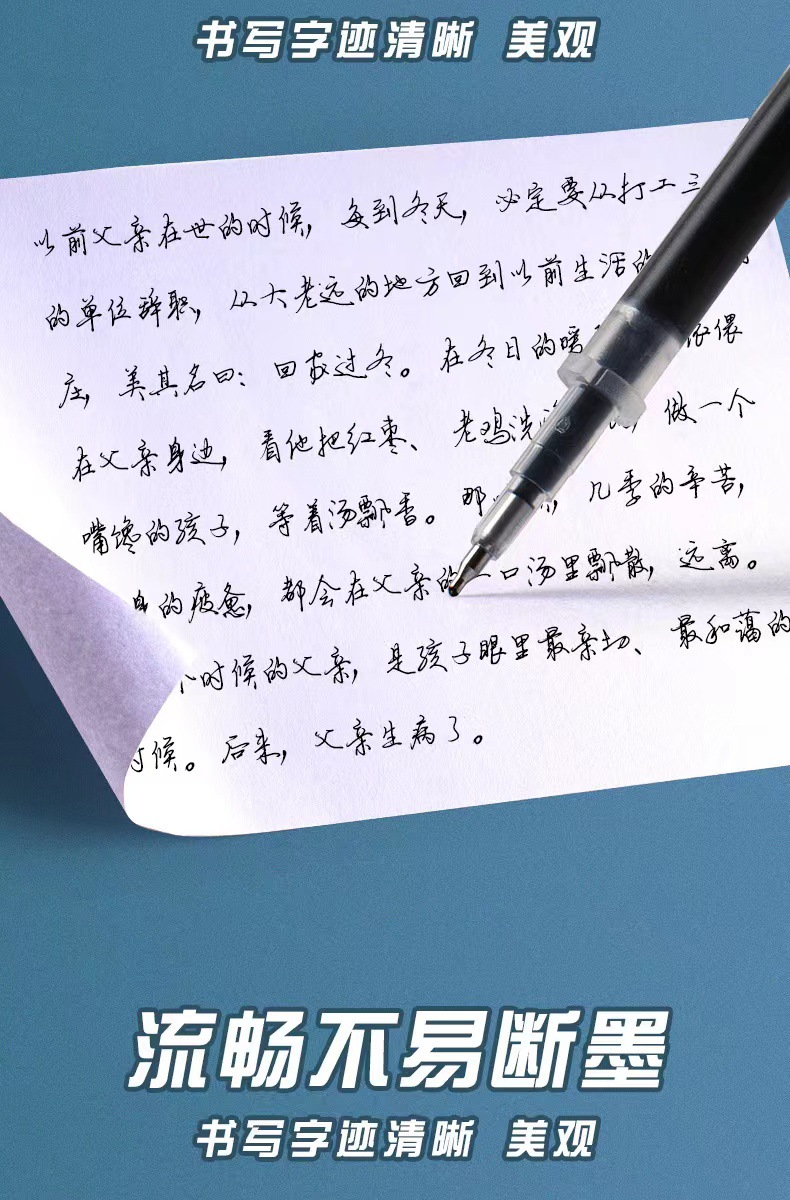 书写字迹清晰 美观
以前父亲在世的时候，每到冬天，必定要从打工三
的单位辞职，从大老远的地方回到以前生活的
庄，美其名曰：回家过冬。在冬日的暖 依偎
在父亲身边，看他把红枣、老鸡洗 ，做一个
嘴馋的孩子，等着汤飘香。那 ，几季的辛苦，
的疲惫，都会在父亲的一口汤里飘散，远离。
个时候的父亲，是孩子眼里最亲切、最和蔼的
时候。后来，父亲生病了。
流畅不易断墨
书写字迹清晰 美观